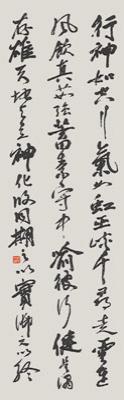 行神如空行氣如虹巫峽千尋走雲連
風飲真茹強蓄素守中喻彼行健是謂
存雄天地與立神化攸同期之以實御之以終